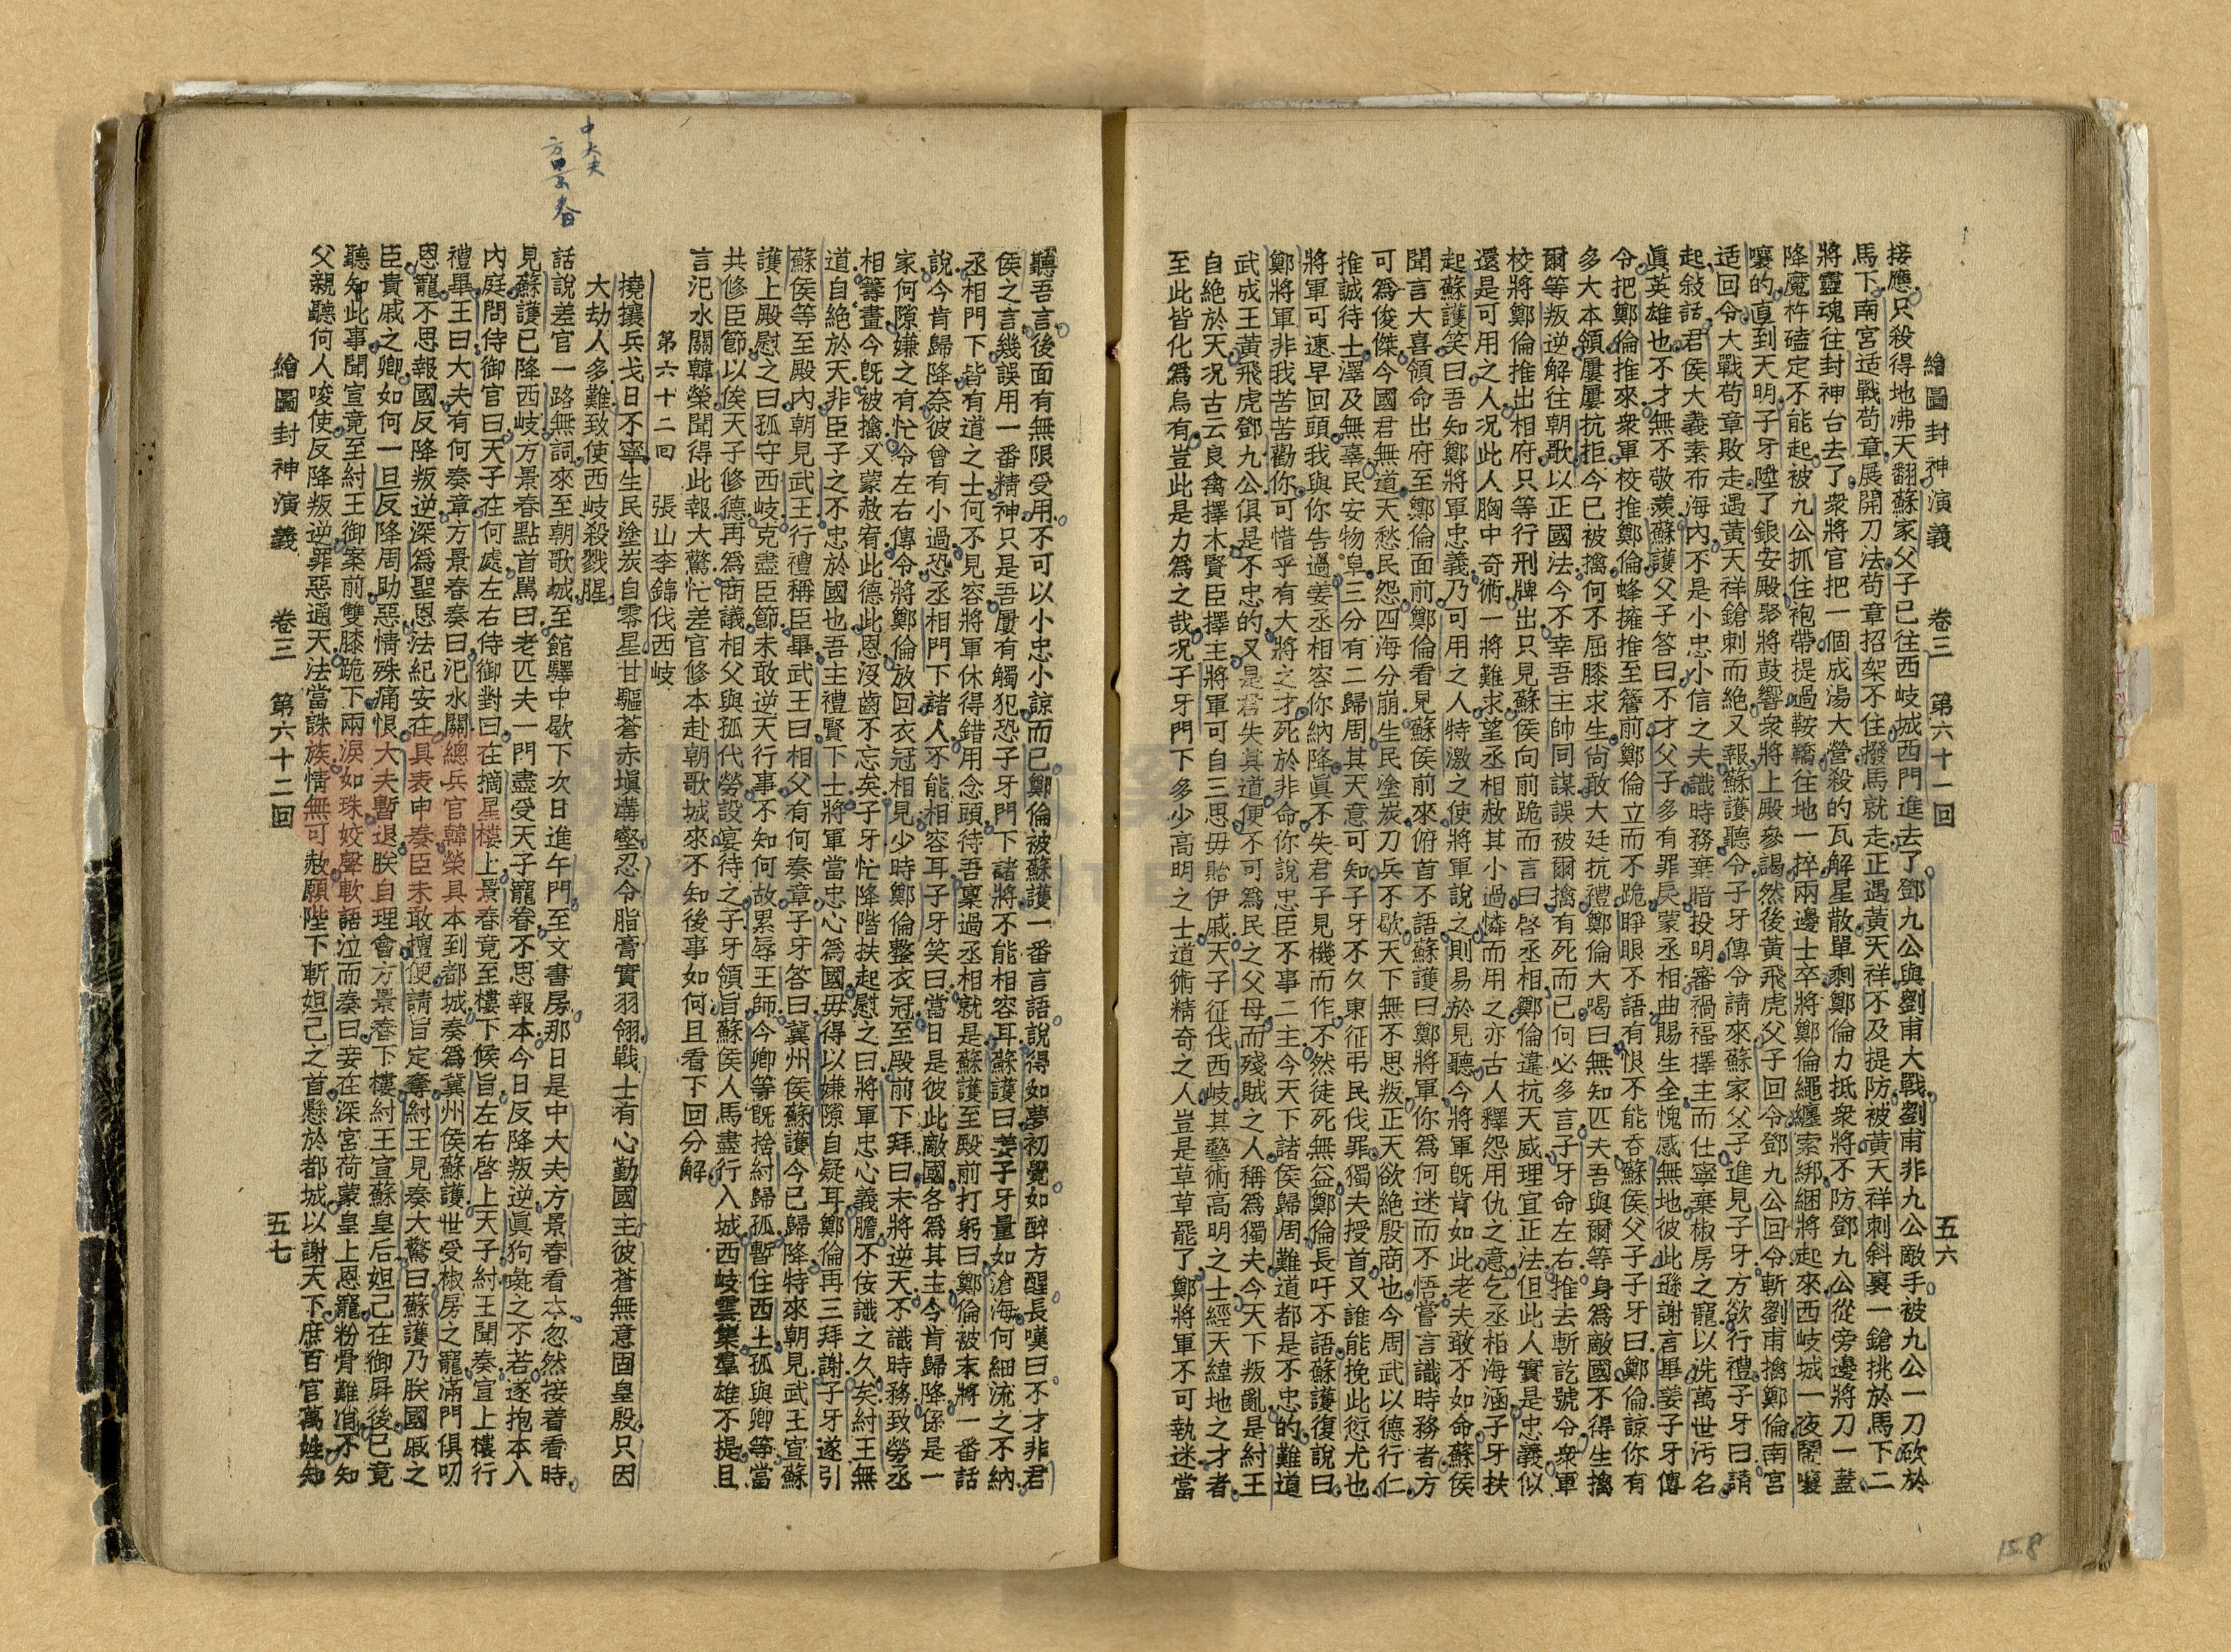 繪圖封神演義　卷三　第六十一回　五六
接應只殺得地沸天翻蘇家父子已往西岐城西門進去了鄧九公與劉甫大戰劉甫非九公敵手被九公一刀砍於
馬下南宮适戰苟章展開刀法苟章招架不住撥馬就走正遇黃天祥不及提防被黃天祥刺斜裏一鎗挑於馬下二
將靈魂往封神台去了衆將官把一個成湯大營殺的瓦解星散單剩鄭倫力抵衆將不防鄧九公從旁邊將刀一蓋
降魔杵磕定不能起被九公抓住袍帶提過鞍轎往地一摔兩邊士卒將鄭倫繩纏索綁綑將起來西岐城一夜鬧嚷
嚷的直到天明子牙陞了銀安殿聚將鼓響衆將上殿參謁然後黃飛虎父子回令鄧九公回令斬劉甫擒鄭倫南宮
适回令大戰苟章敗走遇黃天祥鎗刺而絕又報蘇護聽令子牙傳令請來蘇家父子進見子牙方欲行禮子牙曰請
起敍話君侯大義素布海內不是小忠小信之夫識時務棄暗投明審禍福擇主而仕寧棄椒房之寵以洗萬世污名
眞英雄也不才無不敬羨蘇護父子答曰不才父子多有罪戾蒙丞相曲賜生全愧感無地彼此遜謝言畢姜子牙傳
令把鄭倫推來衆軍校推鄭倫蜂擁推至簷前鄭倫立而不跪睜眼不語有恨不能吞蘇侯父子子牙曰鄭倫諒你有
多大本領屢屢抗拒今已被擒何不屈膝求生尙敢大廷抗禮鄭倫大喝曰無知匹夫吾與爾等身爲敵國不得生擒
爾等叛逆解往朝歌以正國法今不幸吾主帥同謀誤被爾擒有死而已何必多言子牙命左右推去斬訖號令衆軍
校將鄭倫推出相府只等行刑牌出只見蘇侯向前跪而言曰啓丞相鄭倫違抗天威理宜正法但此人實是忠義似
還是可用之人况此人胸中奇術一將難求望丞相赦其小過憐而用之亦古人釋怨用仇之意乞丞相海涵子牙扶
起蘇護笑曰吾知鄭將軍忠義乃可用之人特激之使將軍說之則易於見聽今將軍旣肯如此老夫敢不如命蘇侯
聞言大喜領命出府至鄭倫面前鄭倫看見蘇侯前來俯首不語蘇護曰鄭將軍你爲何迷而不悟嘗言識時務者方
可爲俊傑今國君無道天愁民怨四海分崩生民塗炭刀兵不歇天下無不思叛正天欲絕殷商也今周武以德行仁
推誠待士澤及無辜民安物阜三分有二歸周其天意可知子牙不久東征弔民伐罪獨夫授首又誰能挽此愆尤也
將軍可速早回頭我與你告過姜丞相容你納降眞不失君子見機而作不然徒死無益鄭倫長吁不語蘇護復說曰
鄭將軍非我苦苦勸你可惜乎有大將之才死於非命你說忠臣不事二主今天下諸侯歸周難道都是不忠的難道
武成王黃飛虎鄧九公俱是不忠的又是君失其道便不可爲民之父母而殘賊之人稱爲獨夫今天下叛亂是紂王
自絕於天况古云良禽擇木賢臣擇主將軍可自三思毋貽伊戚天子征伐西岐其藝術高明之士經天緯地之才者
至此皆化爲烏有豈此是力爲之哉况子牙門下多少高明之士道術精奇之人豈是草草罷了鄭將軍不可執迷當
158
聽吾言後面有無限受用不可以小忠小諒而已鄭倫被蘇護一番言語說得如夢初覺如醉方醒長嘆曰不才非君
侯之言幾誤用一番精神只是吾屢有觸犯恐子牙門下諸將不能相容耳蘇護曰姜子牙量如滄海何細流之不納
丞相門下皆有道之士何不見容將軍休得錯用念頭待吾稟過丞相就是蘇護至殿前打躬曰鄭倫被末將一番話
說今肯歸降奈彼曾有小過恐丞相門下諸人不能相容耳子牙笑曰當日是彼此敵國各爲其主今肯歸降係是一
家何隙嫌之有忙令左右傳令將鄭倫放回衣冠相見少時鄭倫整衣冠至殿前下拜曰末將逆天不識時務致勞丞
相籌畫今旣被擒又蒙赦宥此德此恩沒齒不忘矣子牙忙降階扶起慰之曰將軍忠心義膽不佞識之久矣紂王無
道自絕於天非臣子之不忠於國也吾主禮賢下士將軍當忠心爲國毋得以嫌隙自疑耳鄭倫再三拜謝子牙遂引
蘇侯等至殿內朝見武王行禮稱臣畢武王曰相父有何奏章子牙答曰冀州侯蘇護今已歸降特來朝見武王宣蘇
護上殿慰之曰孤守西岐克盡臣節未敢逆天行事不知何故累辱王師今卿等旣捨紂歸孤暫住西土孤與卿等當
共修臣節以俟天子修德再爲商議相父與孤代勞設宴待之子牙領旨蘇侯人馬盡行入城西岐雲集羣雄不提且
言汜水關韓榮聞得此報大驚忙差官修本赴朝歌城來不知後事如何且看下回分解
第六十二回　張山李錦伐西岐
撓攘兵戈日不寧生民塗炭自零星甘驅蒼赤塡溝壑忍令脂膏實羽翎戰士有心勤國主彼蒼無意固皇殷只因
大劫人多難致使西岐殺戮腥
話說差官一路無詞來至朝歌城至館驛中歇下次日進午門至文書房那日是中大夫方景春看本忽然接着看時
見蘇護已降西岐方景春點首罵曰老匹夫一門盡受天子寵眷不思報本今日反降叛逆眞狗彘之不若遂抱本入
內庭問侍御官曰天子在何處左右侍御對曰在摘星樓上景春竟至樓下候旨左右啓上天子紂王聞奏宣上樓行
禮畢王曰大夫有何奏章方景春奏曰汜水關總兵官韓榮具本到都城奏爲冀州侯蘇護世受椒房之寵滿門俱叨
恩寵不思報國反降叛逆深爲聖恩法紀安在具表申奏臣未敢擅便請旨定奪紂王見奏大驚曰蘇護乃朕國戚之
臣貴戚之卿如何一旦反降周助惡情殊痛恨大夫暫退朕自理會方景春下樓紂王宣蘇皇后妲己在御屛後已竟
聽知此事聞宣竟至紂王御案前雙膝跪下兩淚如珠姣聲軟語泣而奏曰妾在深宮荷蒙皇上恩寵粉骨難消不知
父親聽何人唆使反降叛逆罪惡通天法當誅族情無可赦願陛下斬妲己之首懸於都城以謝天下庶百官萬姓知
繪圖封神演義　卷三　第六十二回　五七
中大夫
方景春